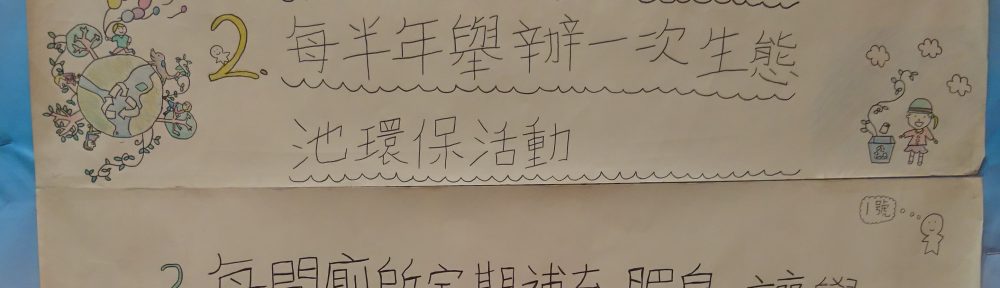 2. 每半年舉辦一次生態
池環保活動
1號
每間廁所定期補充肥皂